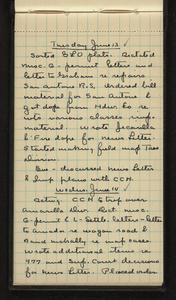 Tuesday June 13
Sorted GLO plats. Dictated
misc. G-permit letters and
letter to Graham re repairs
San Antonio R.S. Ordered bill
material for San Antonio &
got dope from Hdwr Co re
more various classes
material. Wrote
for dope for News Letter
Started making field map Taos
Division.
Eve - discussed News Letter
& Insp plans with CCH.
Wednes. June 14
Acting. CCH & trip over
Amarilla Div. Dict. misc.
G-permit & L-Settle. letters - letter
to Amador re wagon road &
and McNally re map cases
wrote additional items re
777 and Sup. Court decisions
for News Letter. Placed order